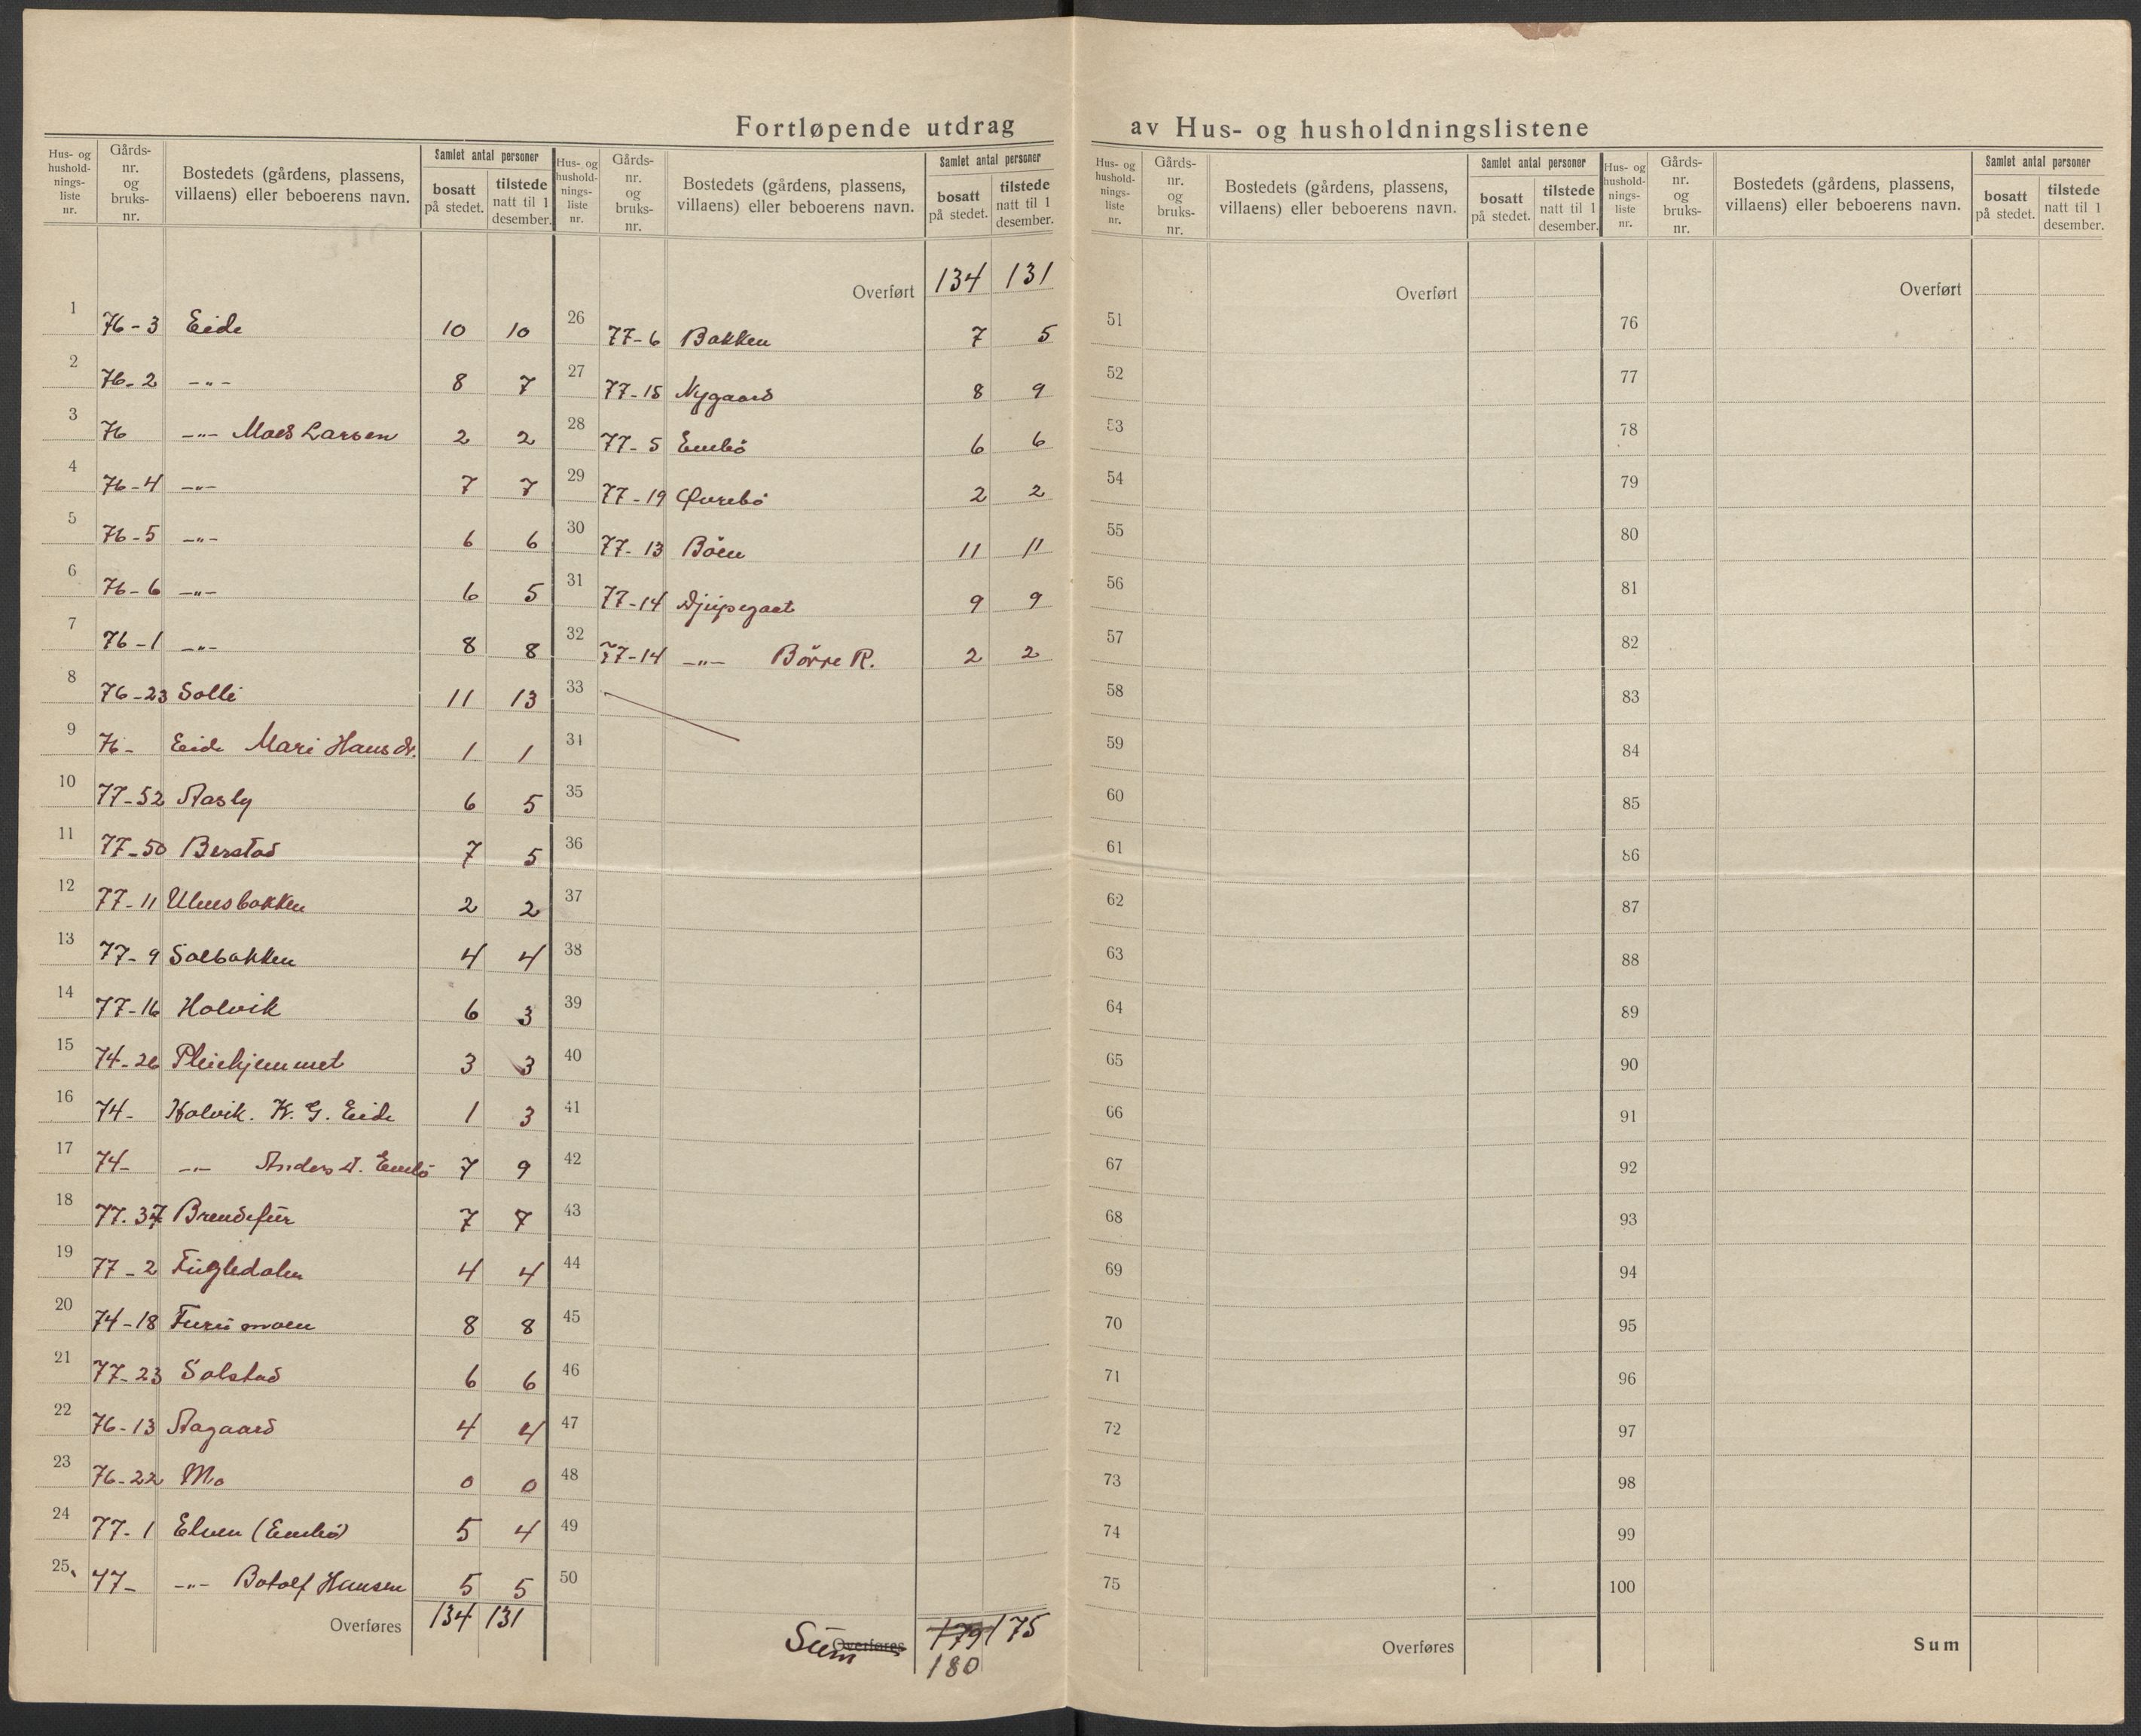 Fortløpende utdrag av Hus- og husholdningslistene
Hus- og hushold- nings- liste nr. Gårds- nr. og bruks- nr. Bostedets (gårdens, plassens, villaens) eller beboerens navn. Samlet antal personer bosatt på stedet. tilstede natt til 1 desember.
1 76-3 Eide 10 10
2 76-2 -"- 8 7
3 76 -"- Mads Larsen 2 2
4 76-4 -"- 7 7
5 76-5 -"- 6 6
6 76-6 -"- 6 5
7 76-1 -"- 8 8
8 76-23 Solli 11 13
9 76- Eide Mari Hansdr. 1 1
10 77-52 Aasly 6 5
11 77-50 Berstad 7 5
12 77-11 Ulvesbakken 2 2
13 77-9 Solbakken 4 4
14 77-16 Holvik 6 3
15 74-26 Pleiehjemmet 3 3
16 74- Holvik. K. G. Eide 1 3
17 74- -"- Anders A. Embö 7 9
18 77.37 Brendefur 7 7
19 77-2 Fugledalen 4 4
20 74-18 Furumoen 8 8
21 77-23 Solstad 6 6
22 76-13 Aagaard 4 4
23 76-22 Mo 0 0
24 77-1 Elven (Embö) 5 4
25 77- -"- Botolf Hansen 5 5
Overføres 134 131
Hus- og hushold- nings- liste nr. Gårds- nr. og bruks- nr. Bostedets (gårdens, plassens, villaens) eller beboerens navn. Samlet antal personer bosatt på stedet. tilstede natt til 1 desember.
Overført 134 131
26 77-6 Bakken 7 5
27 77-15 Nygaard 8 9
28 77-5 Embö 6 6
29 77-19 Øvrebö 2 2
30 77-13 Böen 11 11
31 77-14 Djupegaat 9 9
32 77-14 -"- Börre R. 2 2
33
34
35
36
37
38
39
40
41
42
43
44
45
46
47
48
49
50
Overføres Sum 179 175
180
Hus- og hushold- nings- liste nr. Gårds- nr. og bruks- nr. Bostedets (gårdens, plassens, villaens) eller beboerens navn. Samlet antal personer bosatt på stedet. tilstede natt til 1 desember.
Overført
51
52
53
54
55
56
57
58
59
60
61
62
63
64
65
66
67
68
69
70
71
72
73
74
75
Overføres
Hus- og hushold- nings- liste nr. Gårds- nr. og bruks- nr. Bostedets (gårdens, plassens, villaens) eller beboerens navn. Samlet antal personer bosatt på stedet. tilstede natt til 1 desember.
Overført
76
77
78
79
80
81
82
83
84
85
86
87
88
89
90
91
92
93
94
95
96
97
98
99
100
Sum